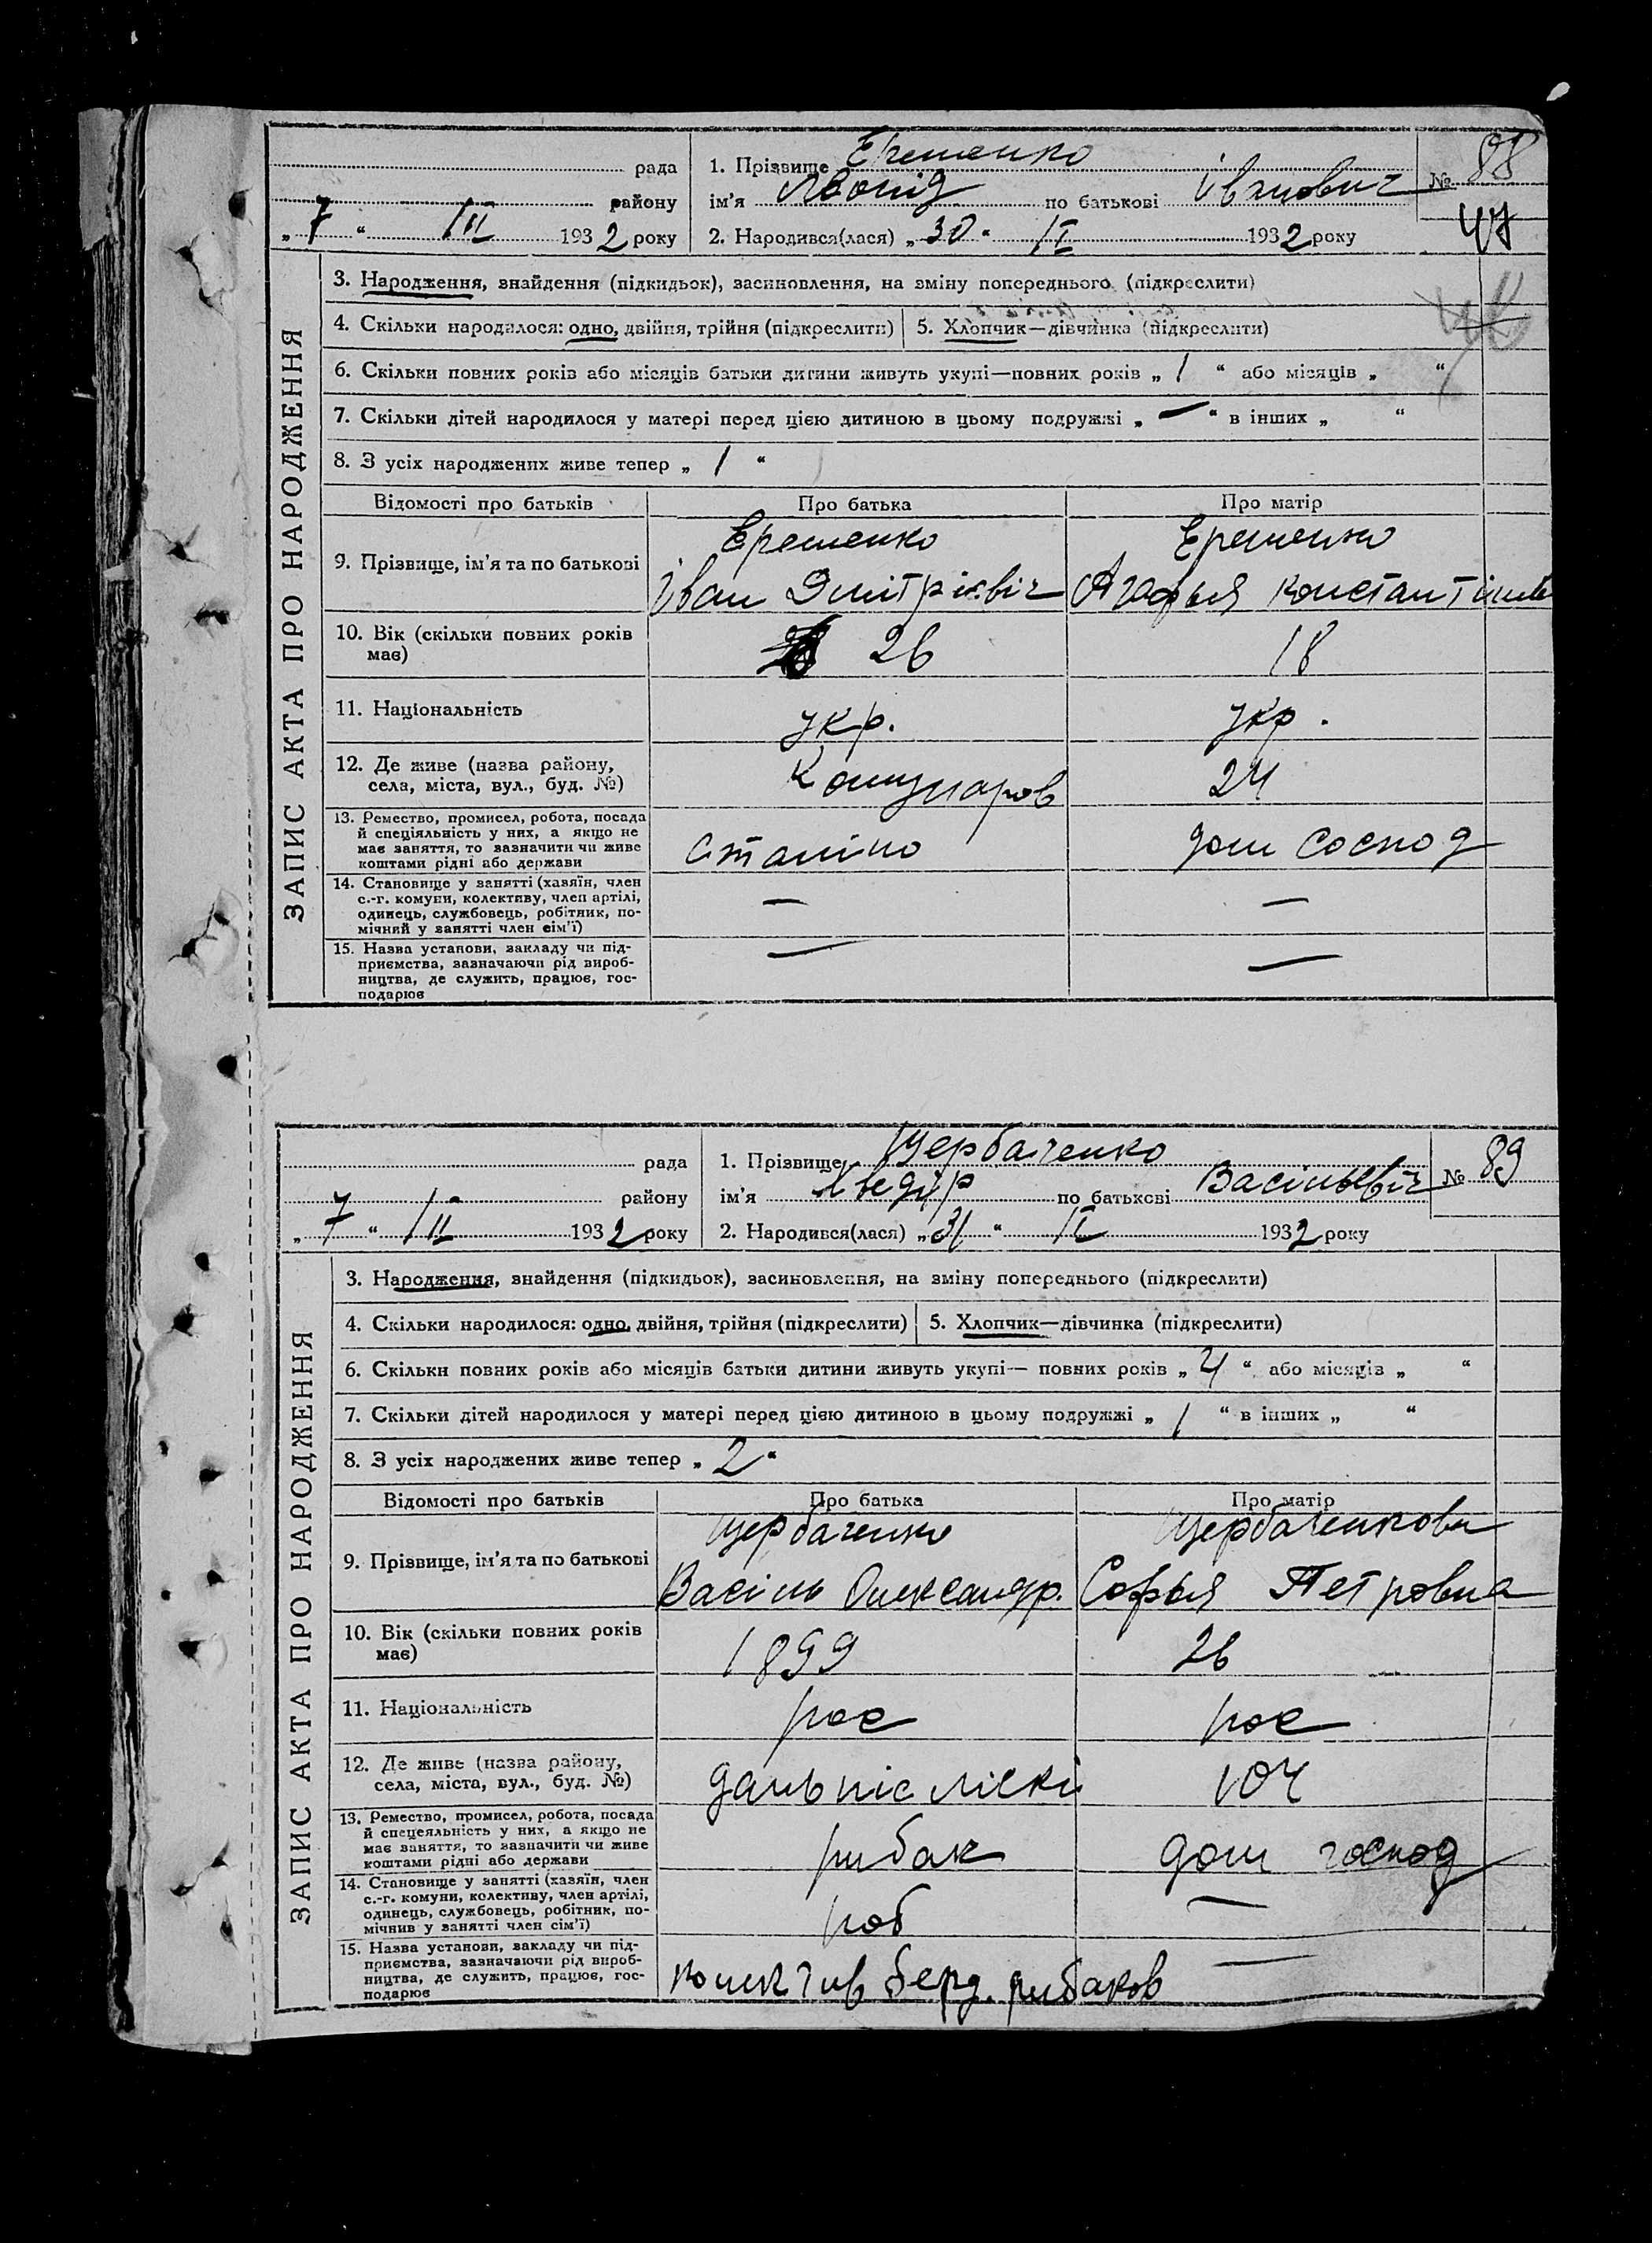 рада
району
„ 7 “ III 1932 року
1. Прізвище Еременко
ім'я Леонід по батькові Іванович
2. Народився(лася) „ 30 “ I 1932 року
№ 88
47
ЗАПИС АКТА ПРО НАРОДЖЕННЯ
3. Народження, знайдення (підкидьок), засиновлення, на зміну попереднього (підкреслити)
4. Скільки народилося: одно, двійня, трійня (підкреслити)
5. Хлопчик—дівчинка (підкреслити)
6. Скільки повних років або місяців батьки дитини живуть укупі—повних років „ 1 “ або місяців „ “
7. Скільки дітей народилося у матері перед цією дитиною в цьому подружжі „ — “ в інших „ “
8. З усіх народжених живе тепер „ 1 “
Відомості про батьків Про батька Про матір
9. Прізвище, ім'я та по батькові
Еременко
Іван Дмітрієвіч
Еременко
Агафья
10. Вік (скільки повних років
має)
26
18
11. Національність
укр.
укр.
12. Де живе (назва району,
села, міста, вул., буд. №)
Комунаров
24
13. Ремество, промисел, робота, посада
й спеціяльність у них, а якщо не
має заняття, то зазначити чи живе
коштами рідні або держави
Сталіно
дом Соспод
14. Становище у занятті (хазяїн, член
с.-г. комуни, колективу, член артілі,
одинець, службовець, робітник, по-
мічний у занятті член сім'ї)
—
—
15. Назва установи, закладу чи під-
приємства, зазначаючи рід вироб-
ництва, де служить, працює, гос-
подарює
—
—
рада
району
„ 7 “ III 1932 року
1. Прізвище Щербаченко
ім'я по батькові Васільєвіч
2. Народився(лася) „ 31 “ I 1932 року
№ 89
ЗАПИС АКТА ПРО НАРОДЖЕННЯ
3. Народження, знайдення (підкидьок), засиновлення, на зміну попереднього (підкреслити)
4. Скільки народилося: одно, двійня, трійня (підкреслити)
5. Хлопчик—дівчинка (підкреслити)
6. Скільки повних років або місяців батьки дитини живуть укупі— повних років „ 4 “ або місяців „ “
7. Скільки дітей народилося у матері перед цією дитиною в цьому подружжі „ 1 “ в інших „ “
8. З усіх народжених живе тепер „ 2 “
Відомості про батьків Про батька Про матір
9. Прізвище, ім'я та по батькові
Щербаченко
Васіль Олександр.
Щербаченкова
Софья Петровна
10. Вік (скільки повних років
має)
1899
26
11. Національність
рос
рос
12. Де живе (назва району,
села, міста, вул., буд. №)
104
13. Ремество, промисел, робота, посада
й спецеяльність у них, а якщо не
має заняття, то зазначити чи живе
коштами рідні або держави
рибак
дом господ
14. Становище у занятті (хазяїн, член
с.-г. комуни, колективу, член артілі,
одинець, службовець, робітник, по-
мічнив у занятті член сім'ї)
роб
—
15. Назва установи, закладу чи під-
приємства, зазначаючи рід вироб-
ництва, де служить, працює, гос-
подарює
берд. рибаков
—